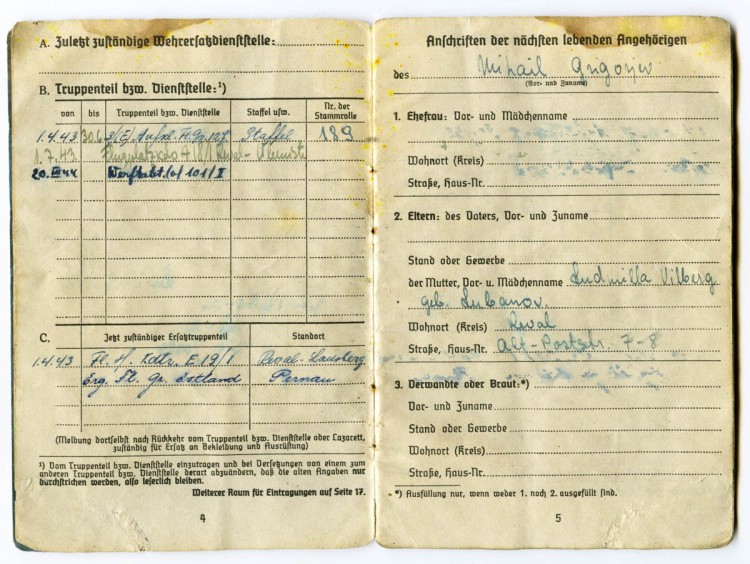 A. Zuletzt zuständige Wehrersatzdienststelle:
B. Truppenteil bzw. Dienststelle:¹)
von bis Truppenteil bzw. Dienststelle Staffel usw. Nr. der Stammrolle
1.4.43 30.6. 3/(E) Aufkl. A. Gr. 127 Staffel 189
1.7.43 Reval-
20.III.44 Werftabt. 101/I
C. Jetzt zuständiger Ersatztruppenteil Standort
1.4.43 Fl. H. Kdtr. E 19/I Reval-
Erg. Fl. Gr. Ostland Pernau
(Meldung dortselbst nach Rückkehr vom Truppenteil bzw. Dienststelle oder Lazarett,
zuständig für Ersatz an Bekleidung und Ausrüstung)
¹) Vom Truppenteil bzw. Dienststelle einzutragen und bei Versetzungen von einem zum
anderen Truppenteil bzw. Dienststelle derart abzuändern, daß die alten Angaben nur
durchstrichen werden, also leserlich bleiben.
Weiterer Raum für Eintragungen auf Seite 17.
4
Anschriften der nächsten lebenden Angehörigen
des Mihail Grigorjew
(Vor- und Zuname)
1. Ehefrau: Vor- und Mädchenname
Wohnort (Kreis)
Straße, Haus-Nr.
2. Eltern: des Vaters, Vor- und Zuname
Stand oder Gewerbe
der Mutter, Vor- u. Mädchenname Ludmilla Vilberg
geb. Lubanov.
Wohnort (Kreis) Reval
Straße, Haus-Nr. Alt-Poststr. 7-8
3. Verwandte oder Braut:*)
Vor- und Zuname
Stand oder Gewerbe
Wohnort (Kreis)
Straße, Haus-Nr.
*) Ausfüllung nur, wenn weder 1. noch 2. ausgefüllt sind.
5